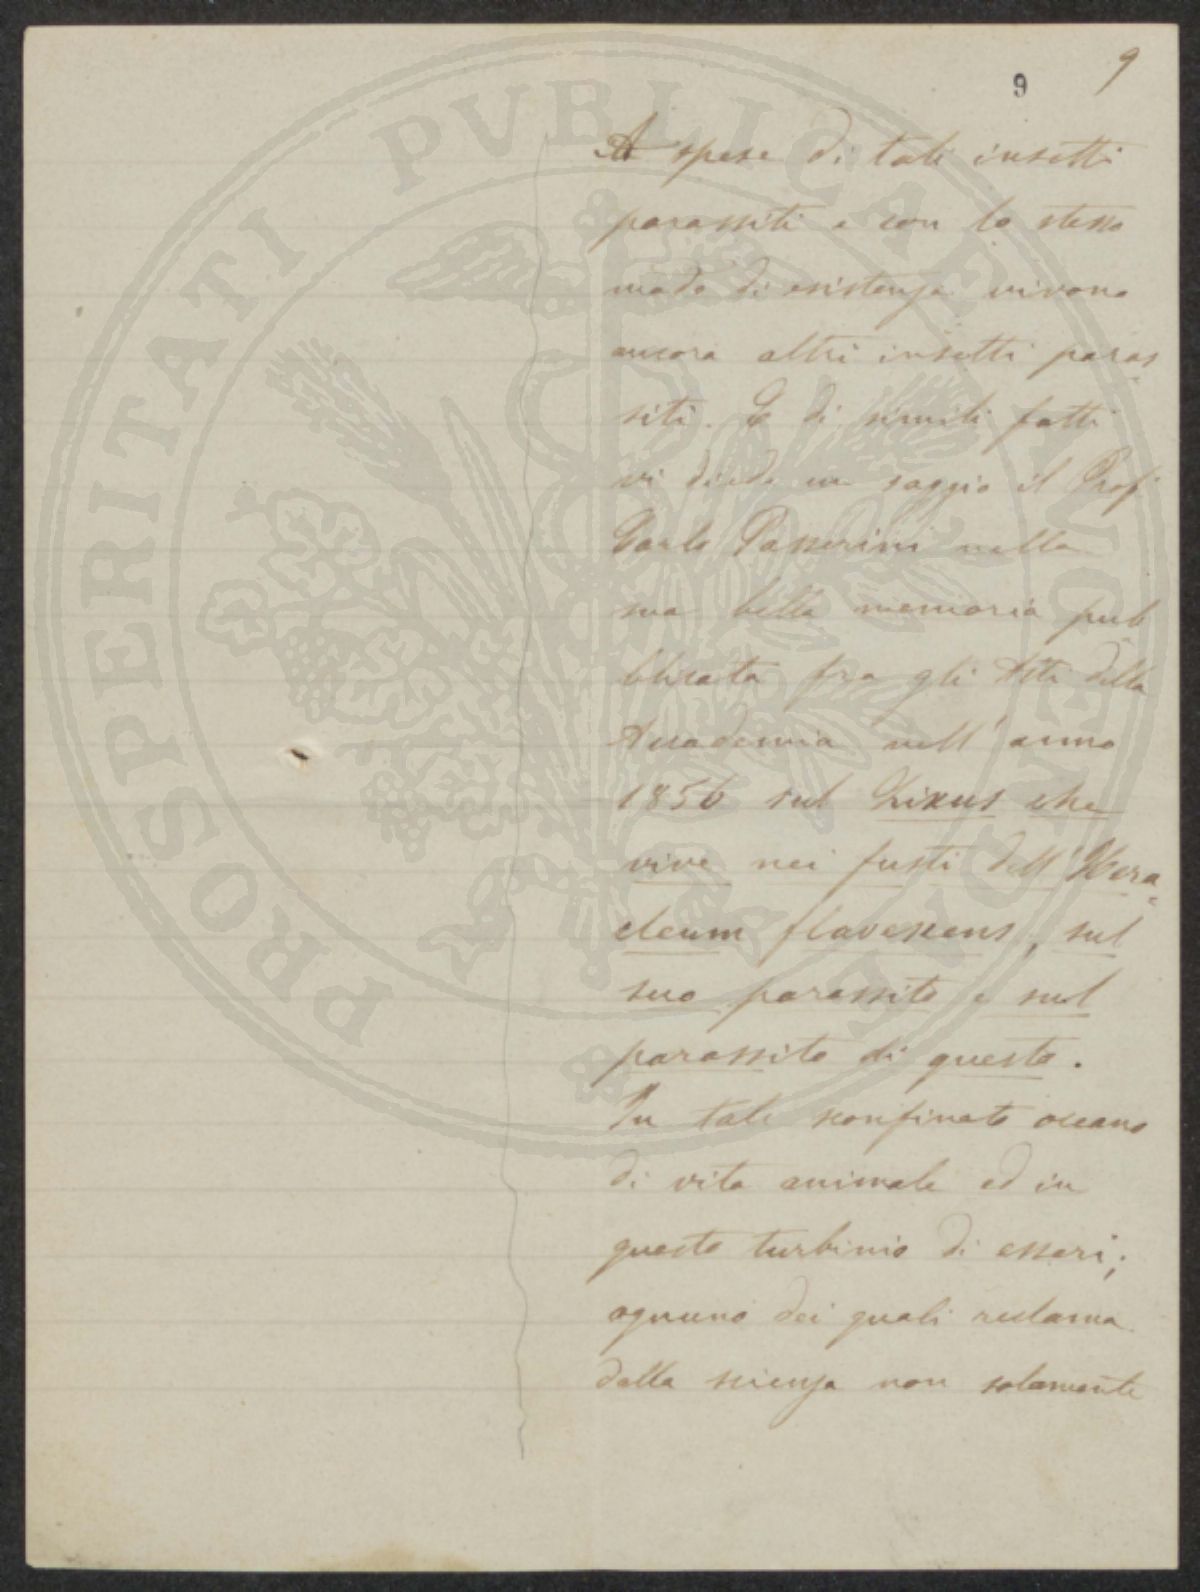 9 9
A spese di tali insetti
parassiti e con lo stesso
modo di esistenza vivono
ancora altri insetti paras-
siti. E di simili fatti
vi diede un saggio il Prof
Carlo Passerini nella
sua bella memoria pub
blicata fra gli Atti della
Accademia nell'anno
1856 sul Lixus che
vive nei fusti dell'Hera-
cleum flavescens, sul
suo parassito e sul
parassito di questo.
In tale sconfinato oceano
di vita animale ed in
questo turbinio di esseri;
ognuno dei quali reclama
dalla scienza non solamente
PROSPERITATI PVBLICAE AVGENDAE